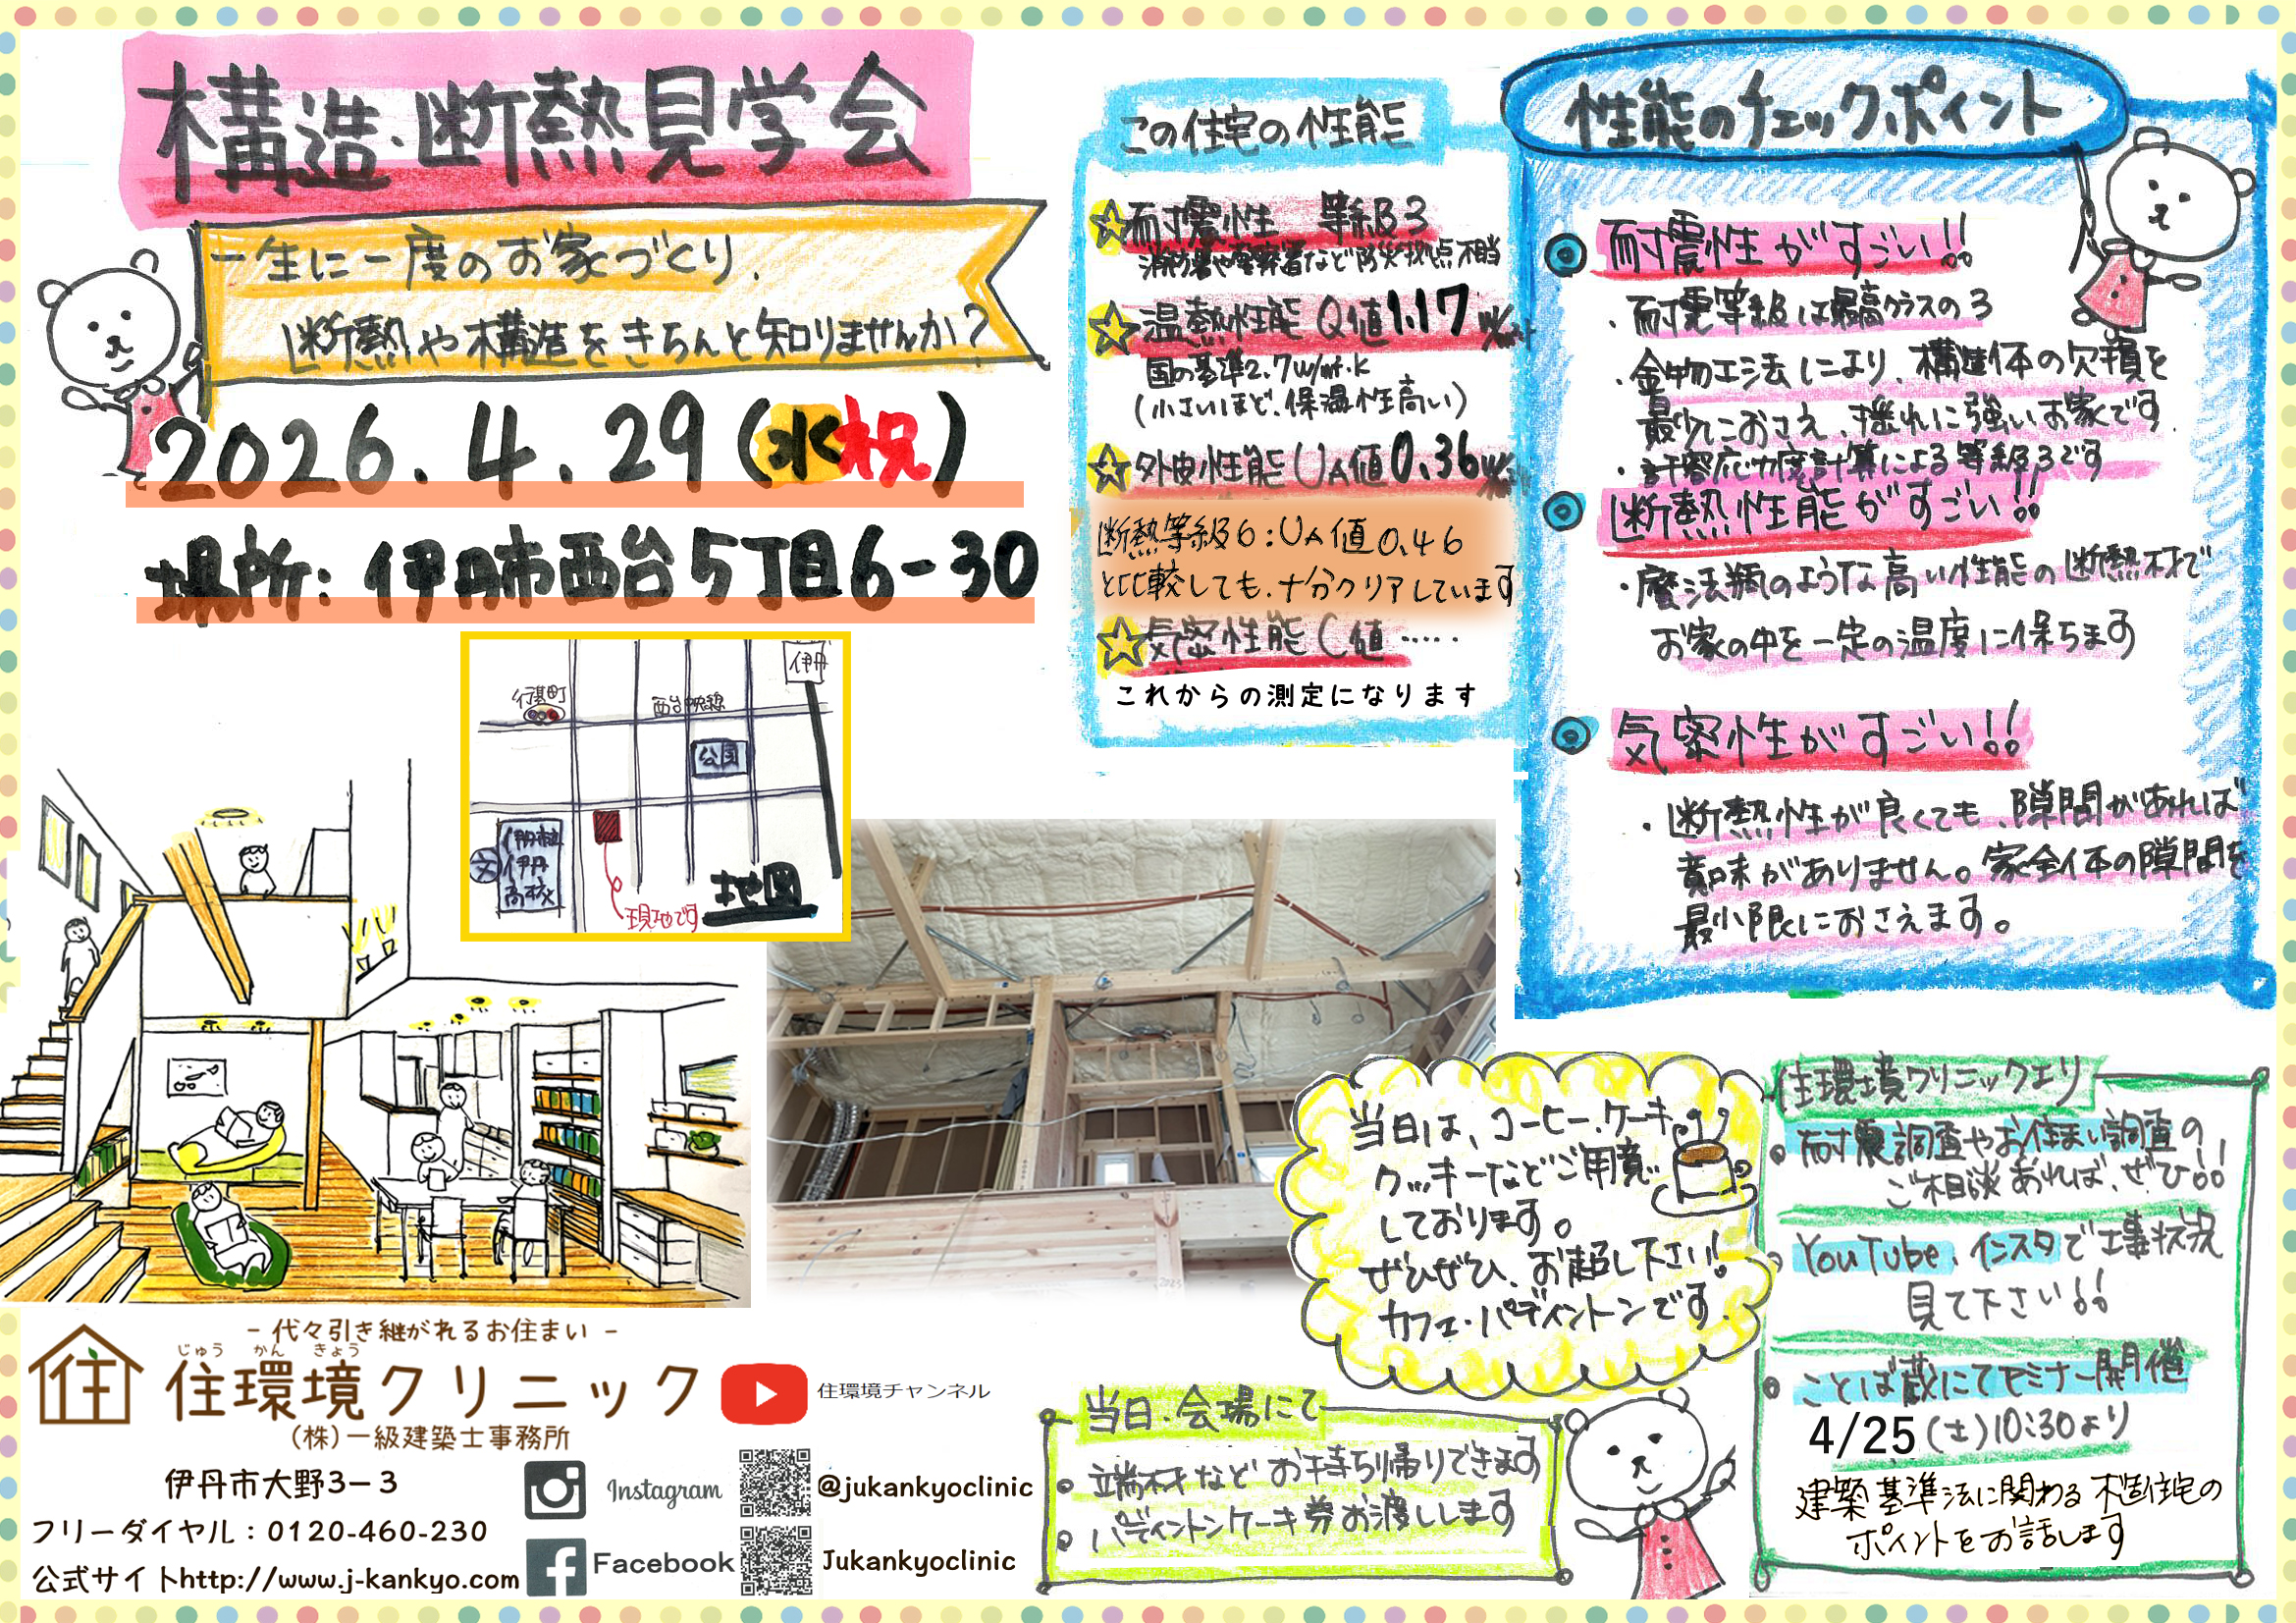 構造・断熱見学会
一生に一度のお家づくり、
断熱や構造をきちんと知りませんか?
2026.4.29(水祝)
場所:伊丹市西台5丁目6-30
伊丹
行基町
西台中央線
公園
伊丹市立
伊丹
高校
文
現地です
地図
この住宅の性能
☆耐震性 等級3
消防署や警察署など防災拠点相当
☆温熱性能 Q値1.17
国の基準2.7W/㎡・K
(小さいほど、保温性高い)
☆外皮性能 UA値0.36
断熱等級6:UA値0.46
と比較しても、十分クリアしています
☆気密性能 C値……
これからの測定になります
性能のチェックポイント
◎耐震性がすごい!!
・耐震等級は最高クラスの3
・金物工法により、構造体の欠損を
最少におさえ、揺れに強いお家です
・許容応力度計算による等級3です
◎断熱性能がすごい!!
・魔法瓶のような高い性能の断熱材で
お家の中を一定の温度に保ちます
◎気密性がすごい!!
・断熱性が良くても、隙間があれば
意味がありません。家全体の隙間を
最小限におさえます。
当日は、コーヒー、ケーキ、
クッキーなどご用意
しております。
ぜひぜひ、お越し下さい!
カフェ・パディントンです。
住環境クリニックより
耐震調査やお住まい調査の
ご相談あれば、ぜひ!!
YouTube、インスタで工事状況
見て下さい!!
ことば蔵にてセミナー開催
4/25(土)10:30より
建築基準法に関わる木造住宅の
ポイントをお話します
当日、会場にて
端材などお持ち帰りできます
パディントンケーキ券お渡しします
- 代々引き継がれるお住まい -
じゅう かん きょう
住
住環境クリニック
(株)一級建築士事務所
伊丹市大野3-3
フリーダイヤル:0120-460-230
公式サイトhttp://www.j-kankyo.com
住環境チャンネル
Instagram
@jukankyoclinic
Facebook
Jukankyoclinic